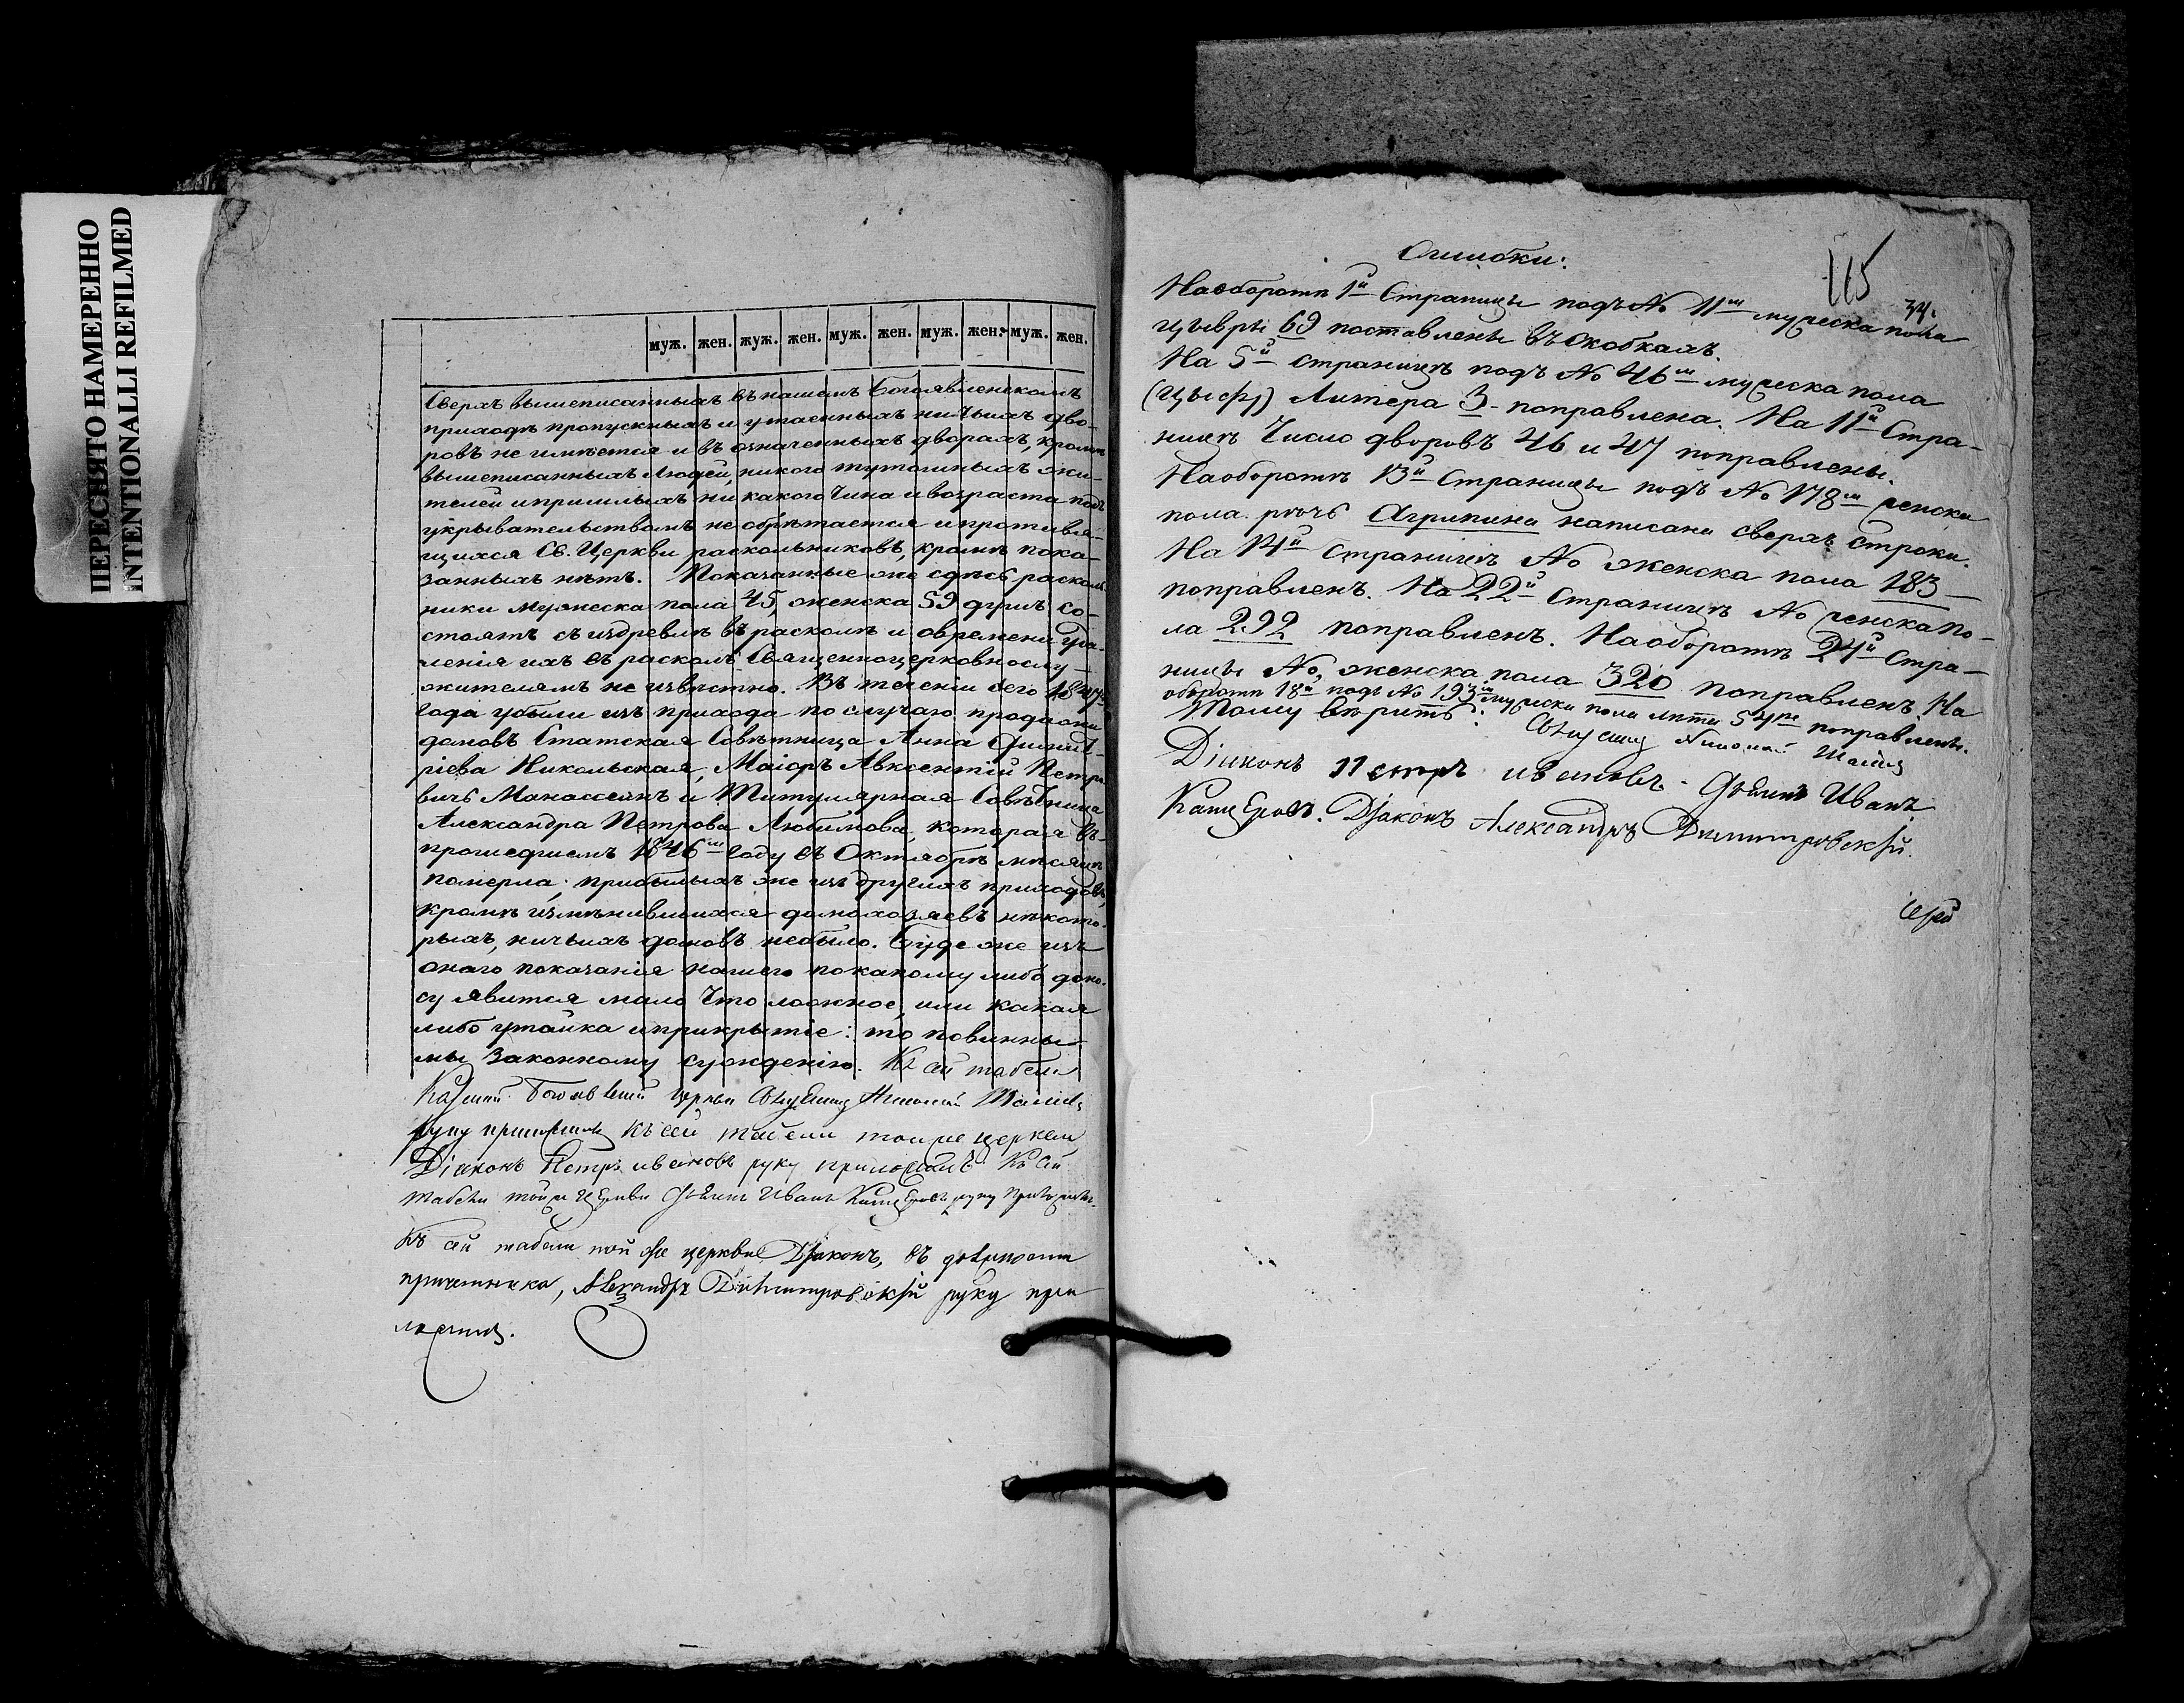 ПЕРЕСНЯТО НАМЕРЕННО
INTENTIONALLI REFILMED
муж. жен. жуж. жен. муж. жен. муж. жен. муж. жен.
Сверхъ вышеписанныхъ въ нашемъ Богоявленскомъ
приходѣ пропускныхъ и утаенныхъ ничьихъ дво-
ровъ не имѣется и въ означенныхъ дворахъ, кромѣ
вышеписанныхъ людей, никого тутошныхъ жи-
телей и пришлыхъ никакого чина и возраста подъ
укрывательствомъ не обрѣтается и противля-
щихся Св. Церкви раскольниковъ, кромѣ пока-
занныхъ нѣтъ. Показанные же здѣсь расколь
ники мужеска пола 45, женска 59 душъ со-
стоятъ съ издревле въ расколѣ и о времени укло-
ненія ихъ въ расколъ Священноцерковнослу-
жителямъ не извѣстно. Въ теченіи сего 1847
года убыли изъ прихода по случаю продажи
домовъ Статская Совѣтница Анна Димит-
ріева Никольская, Маіоръ Авксентій Петро
вичь Манассеинъ и Титулярная Совѣтница
Александра Петрова Любимова, которая въ
прошедшемъ 1846мъ году въ Октябрѣ мѣсяцѣ
померла; прибылыхъ же изъ другихъ приходовъ,
кромѣ измѣнившихся домохозяевъ нѣкото-
рыхъ, ничьихъ домовъ небыло. Буде же изъ
онаго показанія нашего по какому либо доно-
су явится мало что ложное, или какая
либо утайка и прикрытіе: то повинны
мы законному сужденію. Къ сей табели
церкви Священникъ Николай
руку приложилъ Къ сей табели тоя же церкви
Діаконъ Петръ Ивановъ руку приложилъ Къ сей
табели той же Церкви Дьячекъ Иванъ руку приложилъ.
Къ сей табели той же церкви Діаконъ, въ должности
причетника, Александръ Димитровскій руку при
ложилъ.
115
34.
Ошибки:
На оборотѣ 1й Страницы подъ № 11мъ мужеска пола
цыфры 69 поставлены въ скобкахъ.
На 5й страницѣ подъ № 46мъ мужеска пола
(цыфр) Литера 3 поправлена. На 11й Стра-
ницѣ Число дворовъ 46 и 47 поправлены.
На оборотѣ 13й Страницы подъ № 178мъ женска
пола рѣчь Агрипина написана сверхъ строки.
На 14й Страницѣ № женска пола 183
поправленъ. На 22й Страницѣ № женска по-
ла 292 поправленъ. На оборотѣ 24й Стра-
ницы №, женска пола 320 поправленъ. На
оборотѣ 18й подъ № 193мъ мужеска пола лѣта 54ре поправлены.
Тому вѣрить: Священникъ Николай
Діаконъ Петръ Ивановъ. Дьячекъ Иванъ
Діаконъ Александръ Димитровскій.